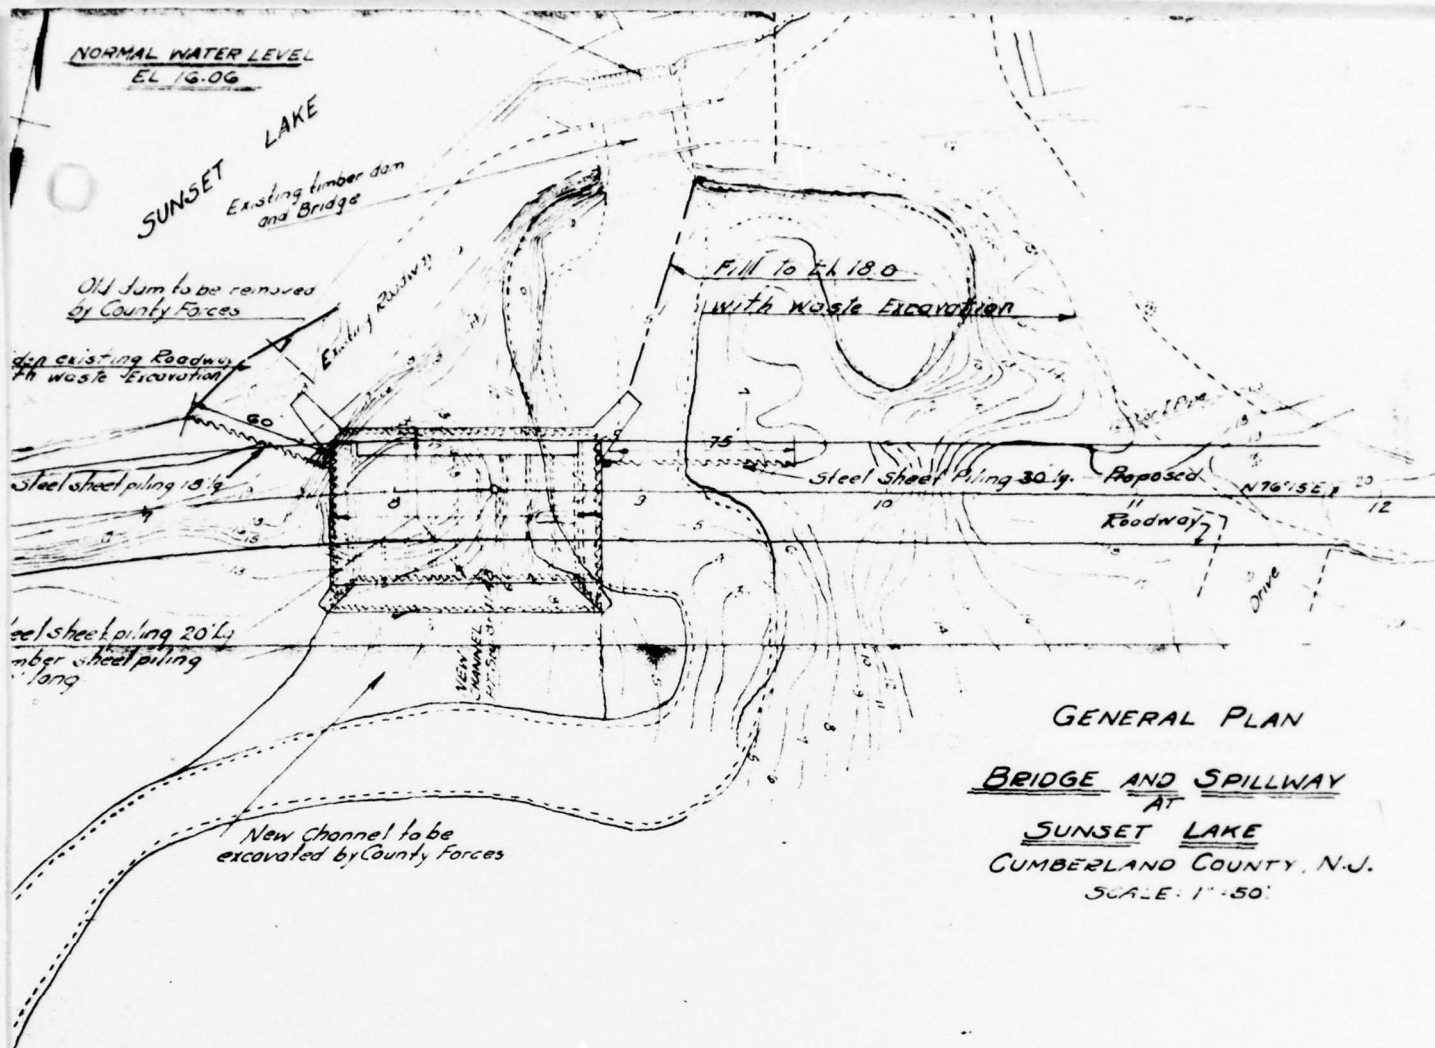 NORMAL WATER LEVEL
EL 16.06
SUNSET LAKE
Existing timber dam
and Bridge
Old dam to be removed
by County Forces
Existing Roadway
existing Roadway
waste Excavation
60
Fill to El 18.0
with waste Excavation
75'
Steel sheet piling 18' lg
Steel Sheet Piling 30' lg.
Proposed
Roadway
N 76° 15' E
8
9
10
11
12
Drive
sheet piling 20' Lg
sheet piling
long
NEW
CHANNEL
New Channel to be
excavated by County Forces
GENERAL PLAN
BRIDGE AND SPILLWAY
AT
SUNSET LAKE
CUMBERLAND COUNTY, N.J.
SCALE: 1" = 50'